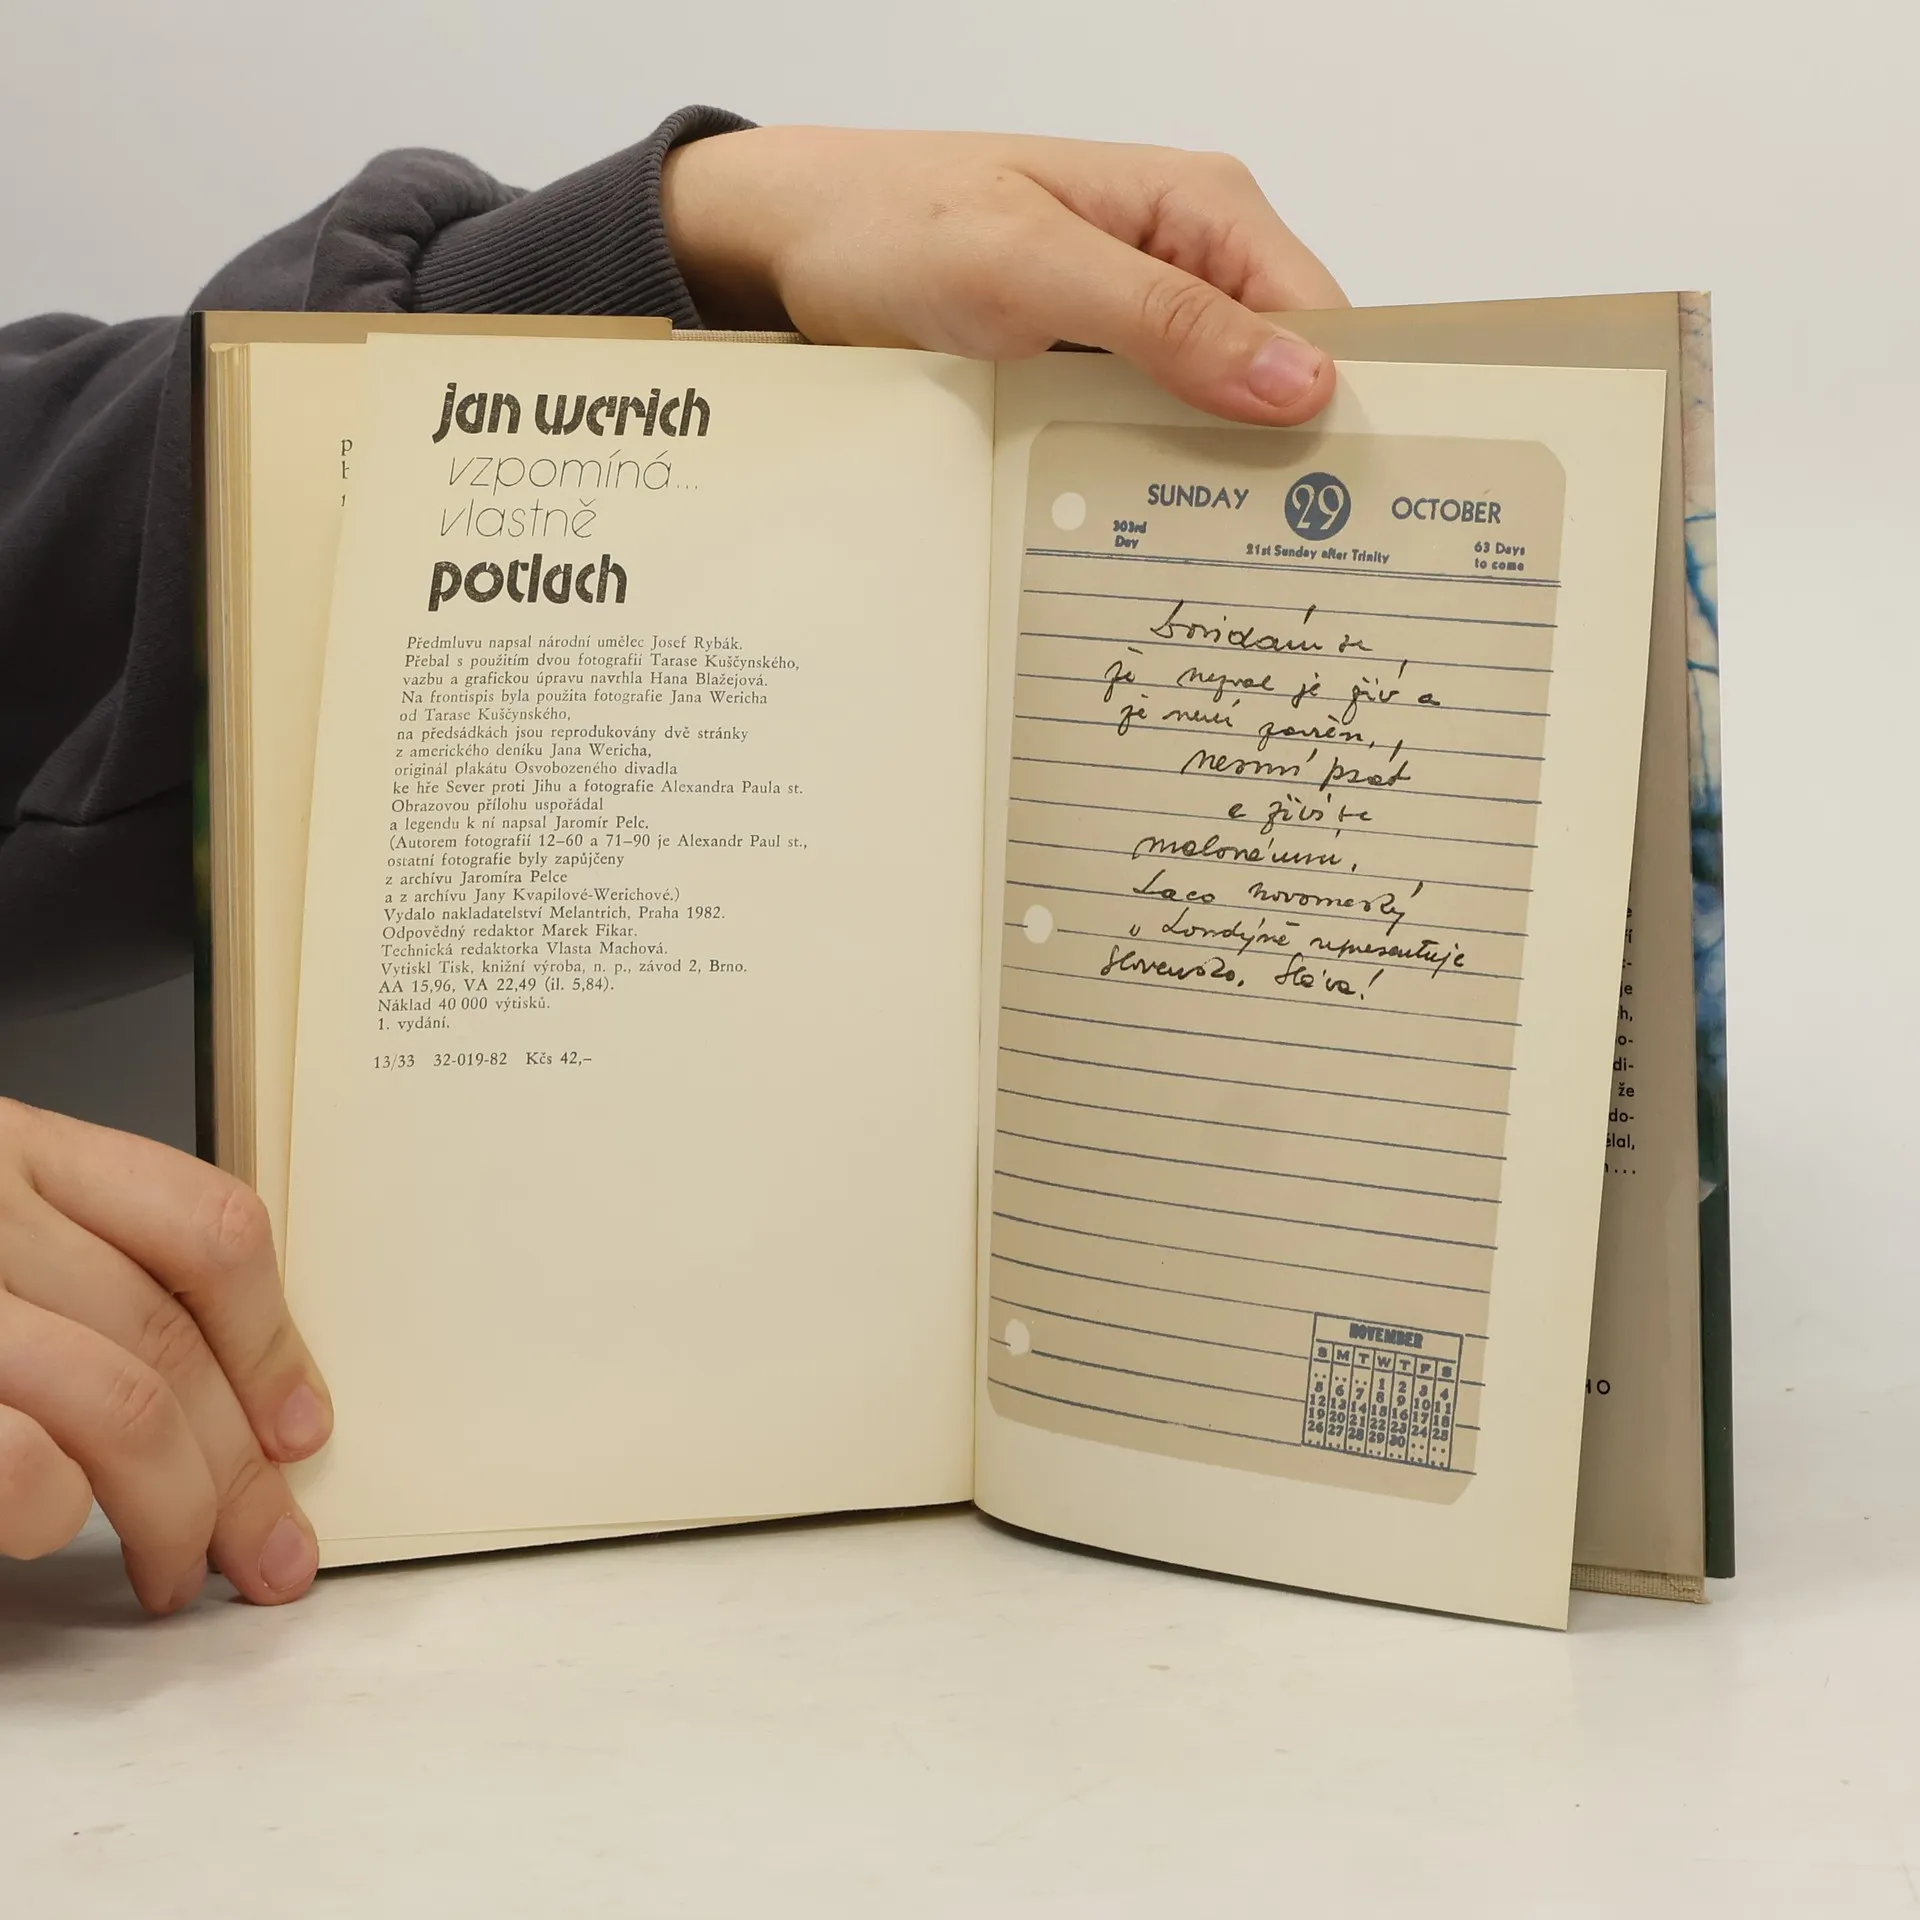 jan werich
vzpomíná...
vlastně
potlach
Předmluvu napsal národní umělec Josef Rybák.
Přebal s použitím dvou fotografií Tarase Kuščynského,
vazbu a grafickou úpravu navrhla Hana Blažejová.
Na frontispis byla použita fotografie Jana Wericha
od Tarase Kuščynského,
na předsádkách jsou reprodukovány dvě stránky
z amerického deníku Jana Wericha,
originál plakátu Osvobozeného divadla
ke hře Sever proti Jihu a fotografie Alexandra Paula st.
Obrazovou přílohu uspořádal
a legendu k ní napsal Jaromír Pelc.
(Autorem fotografií 12–60 a 71–90 je Alexandr Paul st.,
ostatní fotografie byly zapůjčeny
z archívu Jaromíra Pelce
a z archívu Jany Kvapilové-Werichové.)
Vydalo nakladatelství Melantrich, Praha 1982.
Odpovědný redaktor Marek Fikar.
Technická redaktorka Vlasta Machová.
Vytiskl Tisk, knižní výroba, n. p., závod 2, Brno.
AA 15,96, VA 22,49 (il. 5,84).
Náklad 40 000 výtisků.
1. vydání.
13/33 32-019-82 Kčs 42,–
SUNDAY 29 OCTOBER
303rd Day 21st Sunday after Trinity 63 Days to come
Dovídám se
že nezval je živ a
že není zavřen,
nesmí psát
a živí se
malováním.
Laco Novomeský
v Londýně representuje
Slovensko. Sláva!
NOVEMBER
S M T W T F S
.. .. .. 1 2 3 4
5 6 7 8 9 10 11
12 13 14 15 16 17 18
19 20 21 22 23 24 25
26 27 28 29 30 .. ..
že